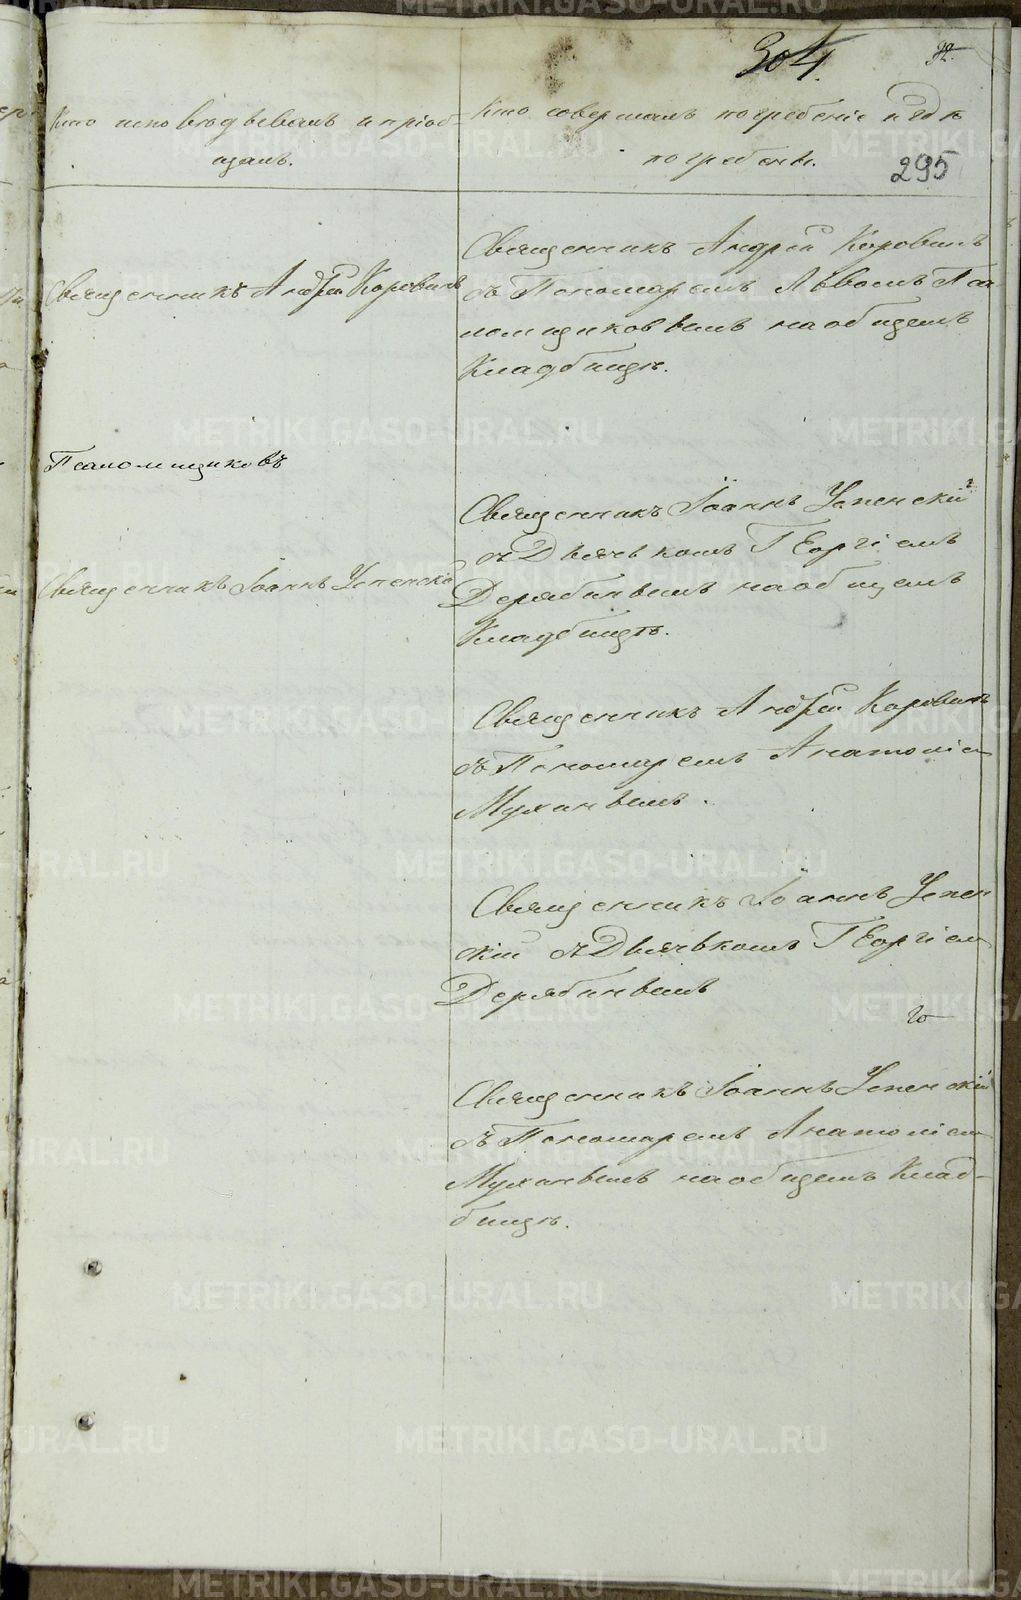 304.
32.
Кто исповѣдывалъ и пріоб-
щалъ.
Кто совершалъ погребеніе и гдѣ
погребены.
295
Священникъ Андрей Коровинъ
Священникъ Андрей Коровинъ
съ Пономаремъ Львомъ Пса
ломщиковымъ на общемъ
Кладбищѣ.
Псаломщиковъ
Священникъ Іоаннъ Успенскій
Священникъ Іоаннъ Успенскій
съ Дьячькомъ Георгіемъ
Дерябинымъ на общемъ
Кладбищѣ.
Священникъ Андрей Коровинъ
съ Пономаремъ Анатоліем
Мухинымъ.
Священникъ Іоаннъ Успен
скій съ Дьячькомъ Георгіем
Дерябинымъ
Священникъ Іоаннъ Успенскій
съ Пономаремъ Анатоліем
Мухинымъ на общемъ Клад-
бищѣ.
METRIKI.GASO-URAL.RU